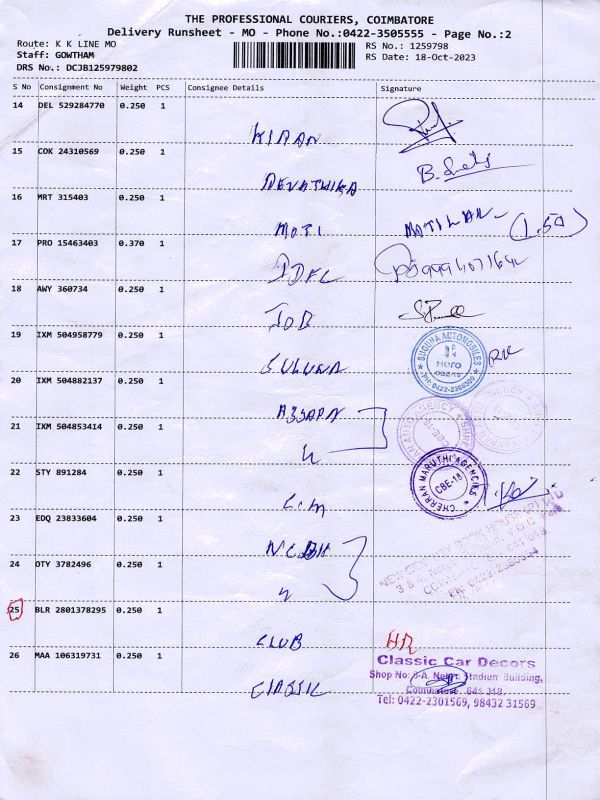 THE PROFESSIONAL COURIERS, COIMBATORE
Delivery Runsheet - MO - Phone No.:0422-3505555 - Page No.:2
Route: K K LINE MO
Staff: GOWTHAM
DRS No.: DCJB125979802
RS No.: 1259798
RS Date: 18-Oct-2023
S No Consignment No Weight PCS Consignee Details Signature
14 DEL 529284770 0.250 1
KIRAN
15 COK 24310569 0.250 1
DEVATHIKA
16 MRT 315403 0.250 1
MOTI MOTILAL (1.50)
17 PRO 15463403 0.370 1
IDFC
18 AWY 360734 0.250 1
IOB
19 IXM 504958779 0.250 1
SUGUNA
SUGUNA AUTOMOBILES
Hero
Ph: 0422-2366309
20 IXM 504882137 0.250 1
21 IXM 504853414 0.250 1
22 STY 891284 0.250 1
CHERRAN MARUTHI AGENCIES
CBE-18
23 EDQ 23833604 0.250 1
NCBH
24 OTY 3782496 0.250 1
25 BLR 2801378295 0.250 1
CLUB HR
26 MAA 106319731 0.250 1
CLASSIC
Classic Car Decors
Shop No: 8-A, Nehru Stadium Building,
Coimbatore. 641 018.
Tel: 0422-2301569, 98432 31569